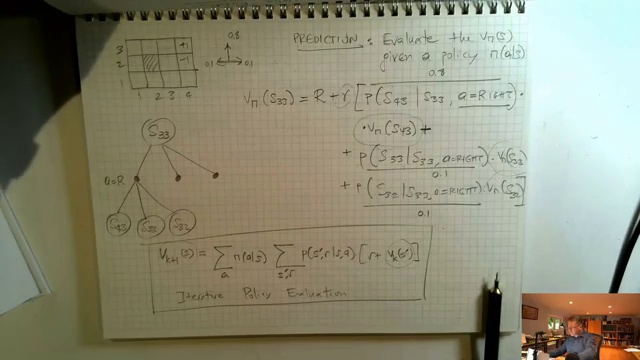 PREDICTION : Evaluate the Vπ(s)
given a policy π(a|s)
3 +1
2 -1
1
1 2 3 4
0.8
0.1 0.1
0.8
Vπ(S33) = R + γ [ P(S43 | S33, a=RIGHT) ·
· Vπ(S43) +
+ P(S33 | S33, a=RIGHT) · Vπ(S33)
0.1
+ P(S32 | S33, a=RIGHT) · Vπ(S32) ]
0.1
S33
a=R
S43 S33 S32
Vk+1(s) = ∑a π(a|s) ∑s',r p(s',r|s,a) [ r + Vk(s') ]
Iterative Policy Evaluation